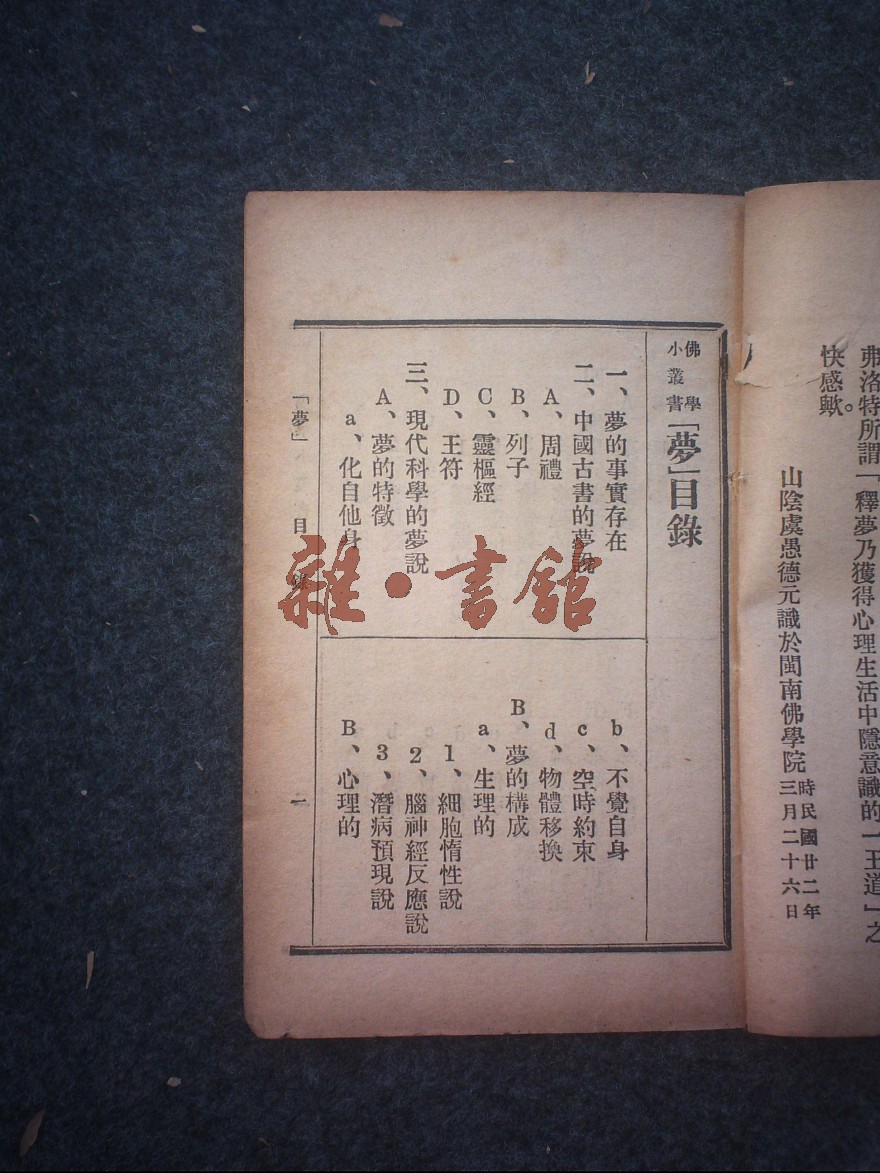 弗洛特所謂「釋夢乃獲得心理生活中隱意識的「王道」之
快感歟。
山陰虞愚德元識於閩南佛學院
時民國廿二年
三月二十六日
佛學
小叢書
「夢」目錄
一、夢的事實存在
二、中國古書的夢說
A、周禮
B、列子
C、靈樞經
D、王符
三、現代科學的夢說
A、夢的特徵
a、化自他身
b、不覺自身
c、空時約束
d、物體移換
B、夢的構成
a、生理的
1、細胞惰性說
2、腦神經反應說
3、潛病預現說
B、心理的
「夢」 目錄
一
雜·書館